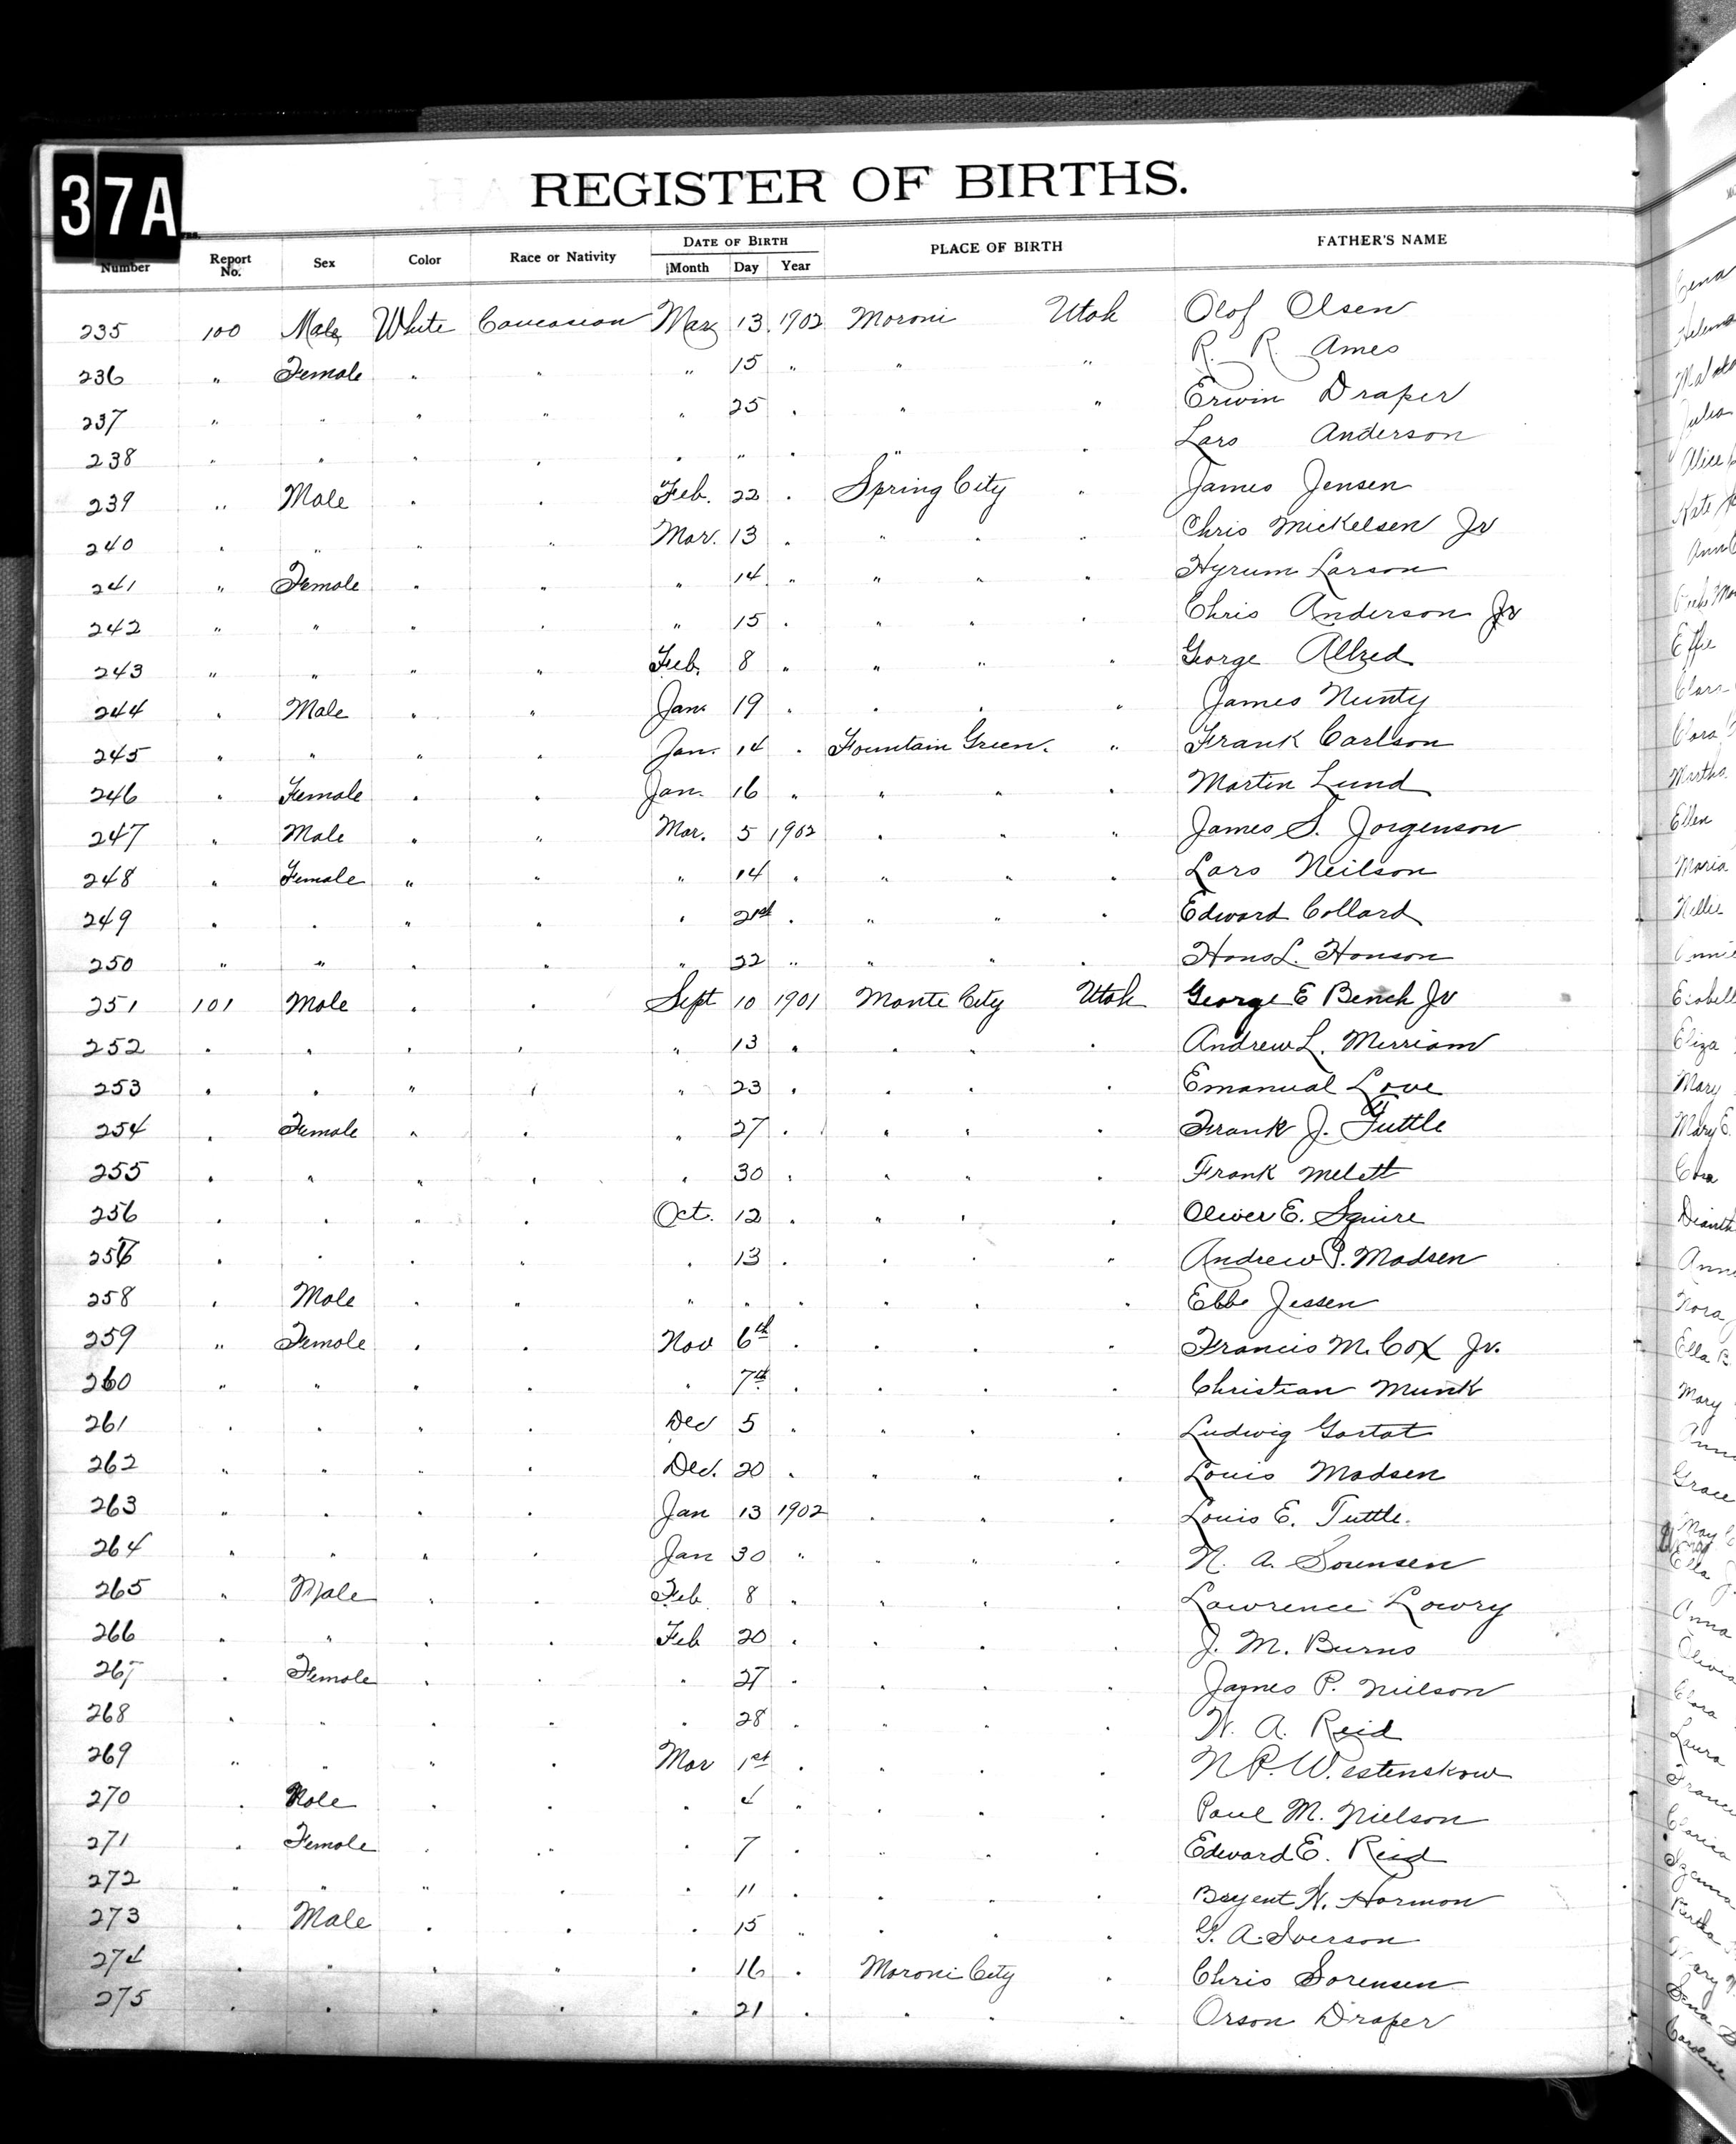 37A
REGISTER OF BIRTHS.
Number Report No. Sex Color Race or Nativity DATE OF BIRTH Month Day Year PLACE OF BIRTH FATHER'S NAME
235 100 Male White Caucasian Mar 13 1902 Moroni Utah Olof Olsen
236 " Female " " " 15 " " " R. R. Ames
237 " " " " " 25 " " " Erwin Draper
238 " " " " " " " " " Lars Anderson
239 " Male " " Feb. 22 " Spring City " James Jensen
240 " " " " Mar. 13 " " " " Chris Mickelsen Jr
241 " Female " " " 14 " " " " Hyrum Larson
242 " " " " " 15 " " " " Chris Anderson Jr
243 " " " " Feb. 8 " " " " George Allred
244 " Male " " Jan. 19 " " " " James Nunty
245 " " " " Jan. 14 " Fountain Green. " Frank Carlson
246 " Female " " Jan. 16 " " " " Martin Lund
247 " Male " " Mar. 5 1902 " " " James S. Jorgenson
248 " Female " " " 14 " " " " Lars Neilson
249 " " " " " 21st " " " " Edward Collard
250 " " " " " 22 " " " " Hans L. Hanson
251 101 Male " " Sept 10 1901 Manti City Utah George E Bench Jr
252 " " " " " 13 " " " " Andrew L. Merriam
253 " " " " " 23 " " " " Emanual Love
254 " Female " " " 27 " " " " Frank J. Tuttle
255 " " " " " 30 " " " " Frank Melett
256 " " " " Oct. 12 " " " " Oliver E. Squire
257 " " " " " 13 " " " " Andrew P. Madsen
258 " Male " " " " " " " " Ebbe Jessen
259 " Female " " Nov 6th " " " " Francis M. Cox Jr.
260 " " " " " 7th " " " " Christian Munk
261 " " " " Dec 5 " " " " Ludwig Gastat
262 " " " " Dec. 20 " " " " Louis Madsen
263 " " " " Jan 13 1902 " " " Louis E. Tuttle.
264 " " " " Jan 30 " " " " N. A. Sorensen
265 " Male " " Feb 8 " " " " Lawrence Lowry
266 " " " " Feb 20 " " " " J. M. Burns
267 " Female " " " 27 " " " " James P. Nielson
268 " " " " " 28 " " " " W. A. Reid
269 " " " " Mar 1st " " " " N P. Westenskow
270 " Male " " " 4 " " " " Paul M. Nielson
271 " Female " " " 7 " " " " Edward E. Reid
272 " " " " " 11 " " " " Bryent H. Harmon
273 " Male " " " 15 " " " " G. A. Iverson
274 " " " " " 16 " Moroni City " Chris Sorensen
275 " " " " " 21 " " " " Orson Draper